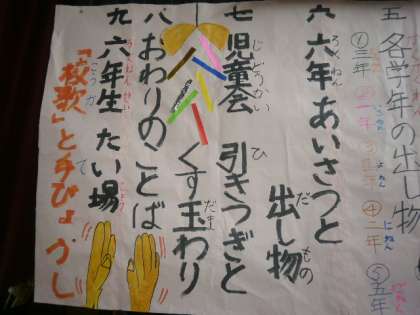 五 各学年の出し物
①三年 ②一年 ③四年 ④二年 ⑤五年
六 六年あいさつと
出し物
七 児童会 引きつぎと
くす玉わり
八 おわりのことば
九 六年生 たい場
「校歌」と手びょうし